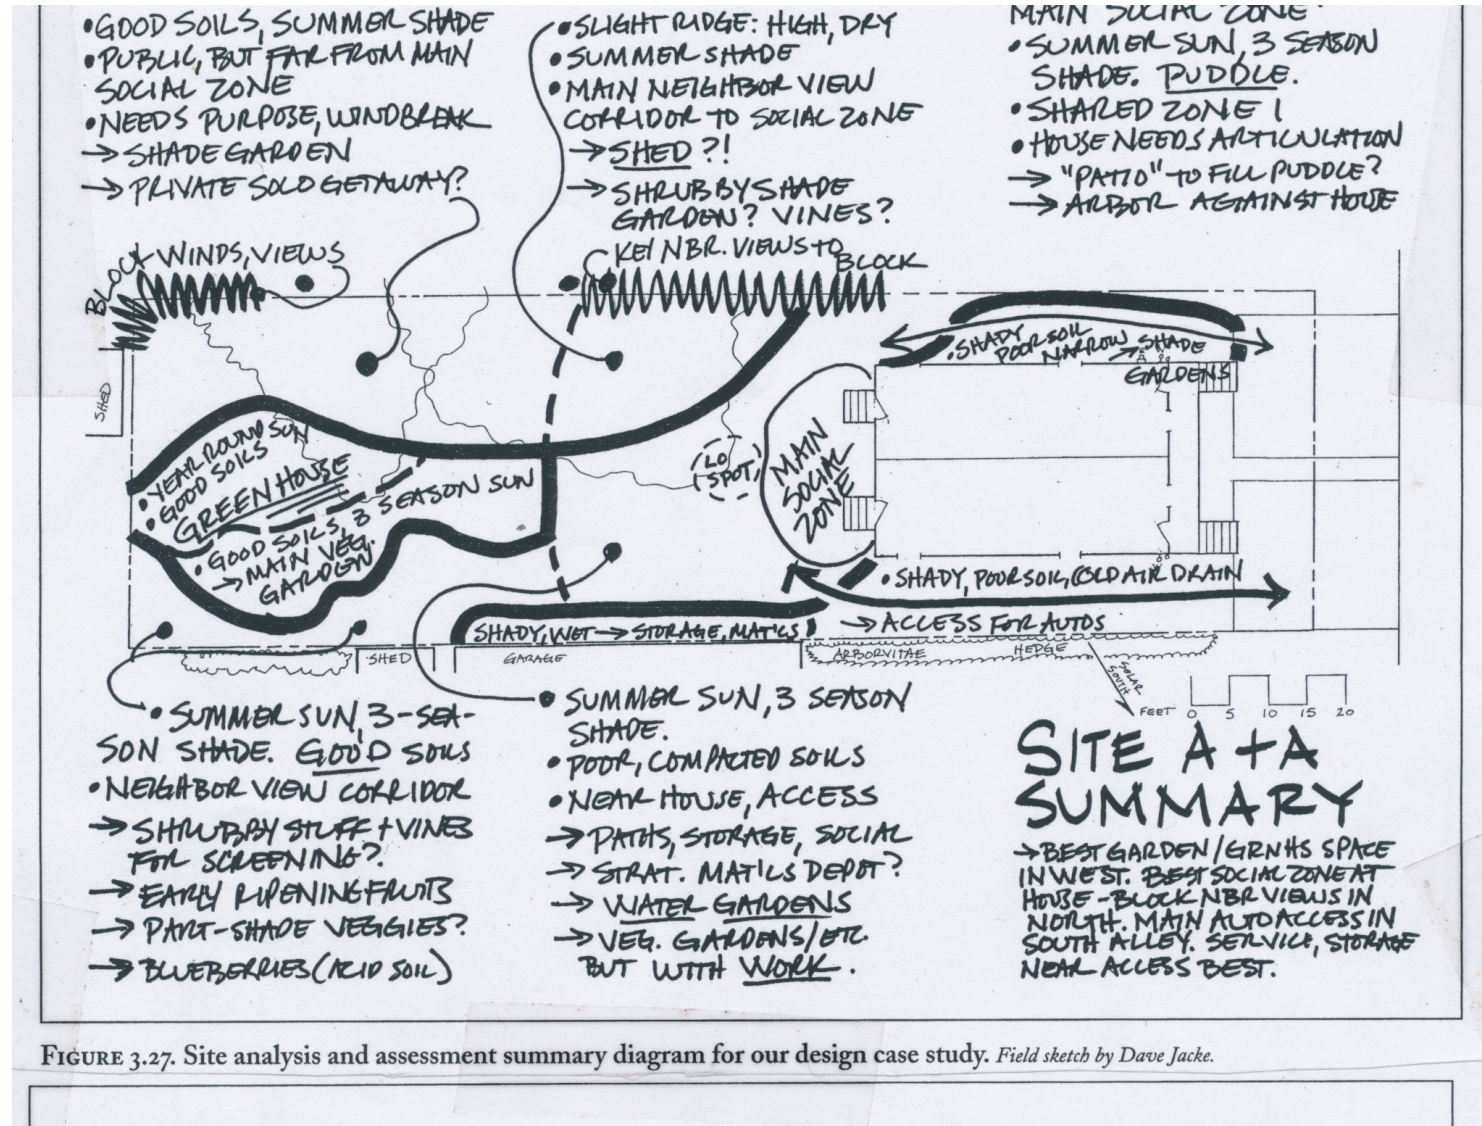 •GOOD SOILS, SUMMER SHADE
•PUBLIC, BUT FAR FROM MAIN
SOCIAL ZONE
•NEEDS PURPOSE, WINDBREAK
→ SHADE GARDEN
→ PRIVATE SOLO GETAWAY?
•SLIGHT RIDGE: HIGH, DRY
•SUMMER SHADE
•MAIN NEIGHBOR VIEW
CORRIDOR TO SOCIAL ZONE
→ SHED ?!
→ SHRUBBY SHADE
GARDEN? VINES?
MAIN SOCIAL ZONE
•SUMMER SUN, 3 SEASON
SHADE. PUDDLE.
•SHARED ZONE 1
•HOUSE NEEDS ARTICULATION
→ "PATIO" TO FILL PUDDLE?
→ ARBOR AGAINST HOUSE
BLOCK WINDS, VIEWS
KEY NBR. VIEWS TO
BLOCK
SHED
•SHADY
POOR SOIL
NARROW → SHADE
GARDENS
• YEAR ROUND SUN
• GOOD SOILS
GREENHOUSE
• GOOD SOILS, 3 SEASON SUN
→ MAIN VEG.
GARDEN
LO
SPOT
MAIN
SOCIAL
ZONE
• SHADY, POOR SOIL, COLD AIR DRAIN
SHADY, WET → STORAGE, MAT'LS
→ ACCESS FOR AUTOS
SHED
GARAGE
ARBORVITAE
HEDGE
SOLAR
SOUTH
FEET 0 5 10 15 20
• SUMMER SUN, 3-SEA-
SON SHADE. GOOD SOILS
• NEIGHBOR VIEW CORRIDOR
→ SHRUBBY STUFF + VINES
FOR SCREENING?
→ EARLY RIPENING FRUITS
→ PART-SHADE VEGGIES?
→ BLUEBERRIES (ACID SOIL)
• SUMMER SUN, 3 SEASON
SHADE.
• POOR, COMPACTED SOILS
• NEAR HOUSE, ACCESS
→ PATHS, STORAGE, SOCIAL
→ STRAT. MAT'LS DEPOT?
→ WATER GARDENS
→ VEG. GARDENS/ETC.
BUT WITH WORK.
SITE A + A
SUMMARY
→ BEST GARDEN/GRNHS SPACE
IN WEST. BEST SOCIAL ZONE AT
HOUSE - BLOCK NBR VIEWS IN
NORTH. MAIN AUTO ACCESS IN
SOUTH ALLEY. SERVICE, STORAGE
NEAR ACCESS BEST.
FIGURE 3.27. Site analysis and assessment summary diagram for our design case study. Field sketch by Dave Jacke.